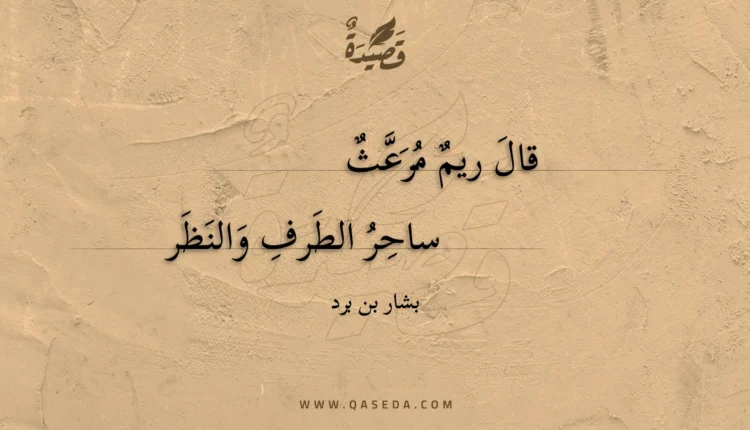 قَصِيدَةٌ
قالَ ريمٌ مُرَعَّثٌ
ساحِرُ الطَرفِ وَالنَظَر
بشار بن برد
WWW.QASEDA.COM